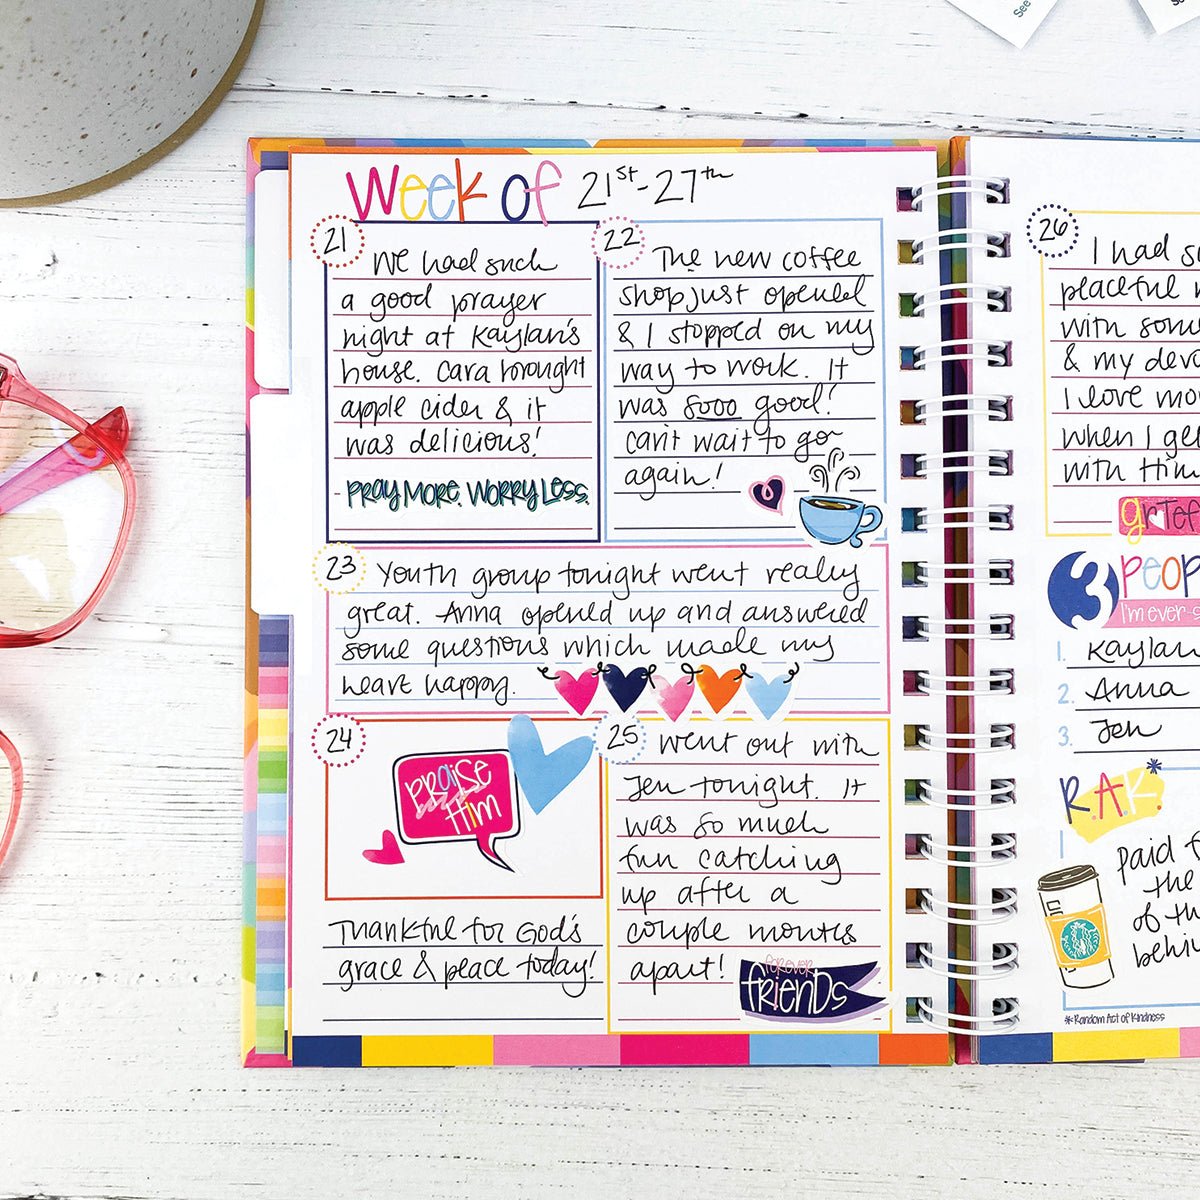 See
Week of 21st-27th
21
We had such
a good prayer
night at Kaylan's
house. Cara brought
apple cider & it
was delicious!
PRAY MORE. WORRY LESS.
22
The new coffee
shop just opened
& I stopped on my
way to work. It
was sooo good!
can't wait to go
again!
23
Youth group tonight went really
great. Anna opened up and answered
some questions which made my
heart happy.
24
PRaise
Him
Thankful for God's
grace & peace today!
25
Went out with
Jen tonight. It
was so much
fun catching
up after a
couple months
apart!
FOREVER
fRIENDS
26
I had
peaceful
with
& my
I love
when I
with Him
3 PEOP
I'm ever-s
1. Kaylan
2. Anna
3. Jen
R.A.K.*
Paid
the
of
*Random Act of Kindness